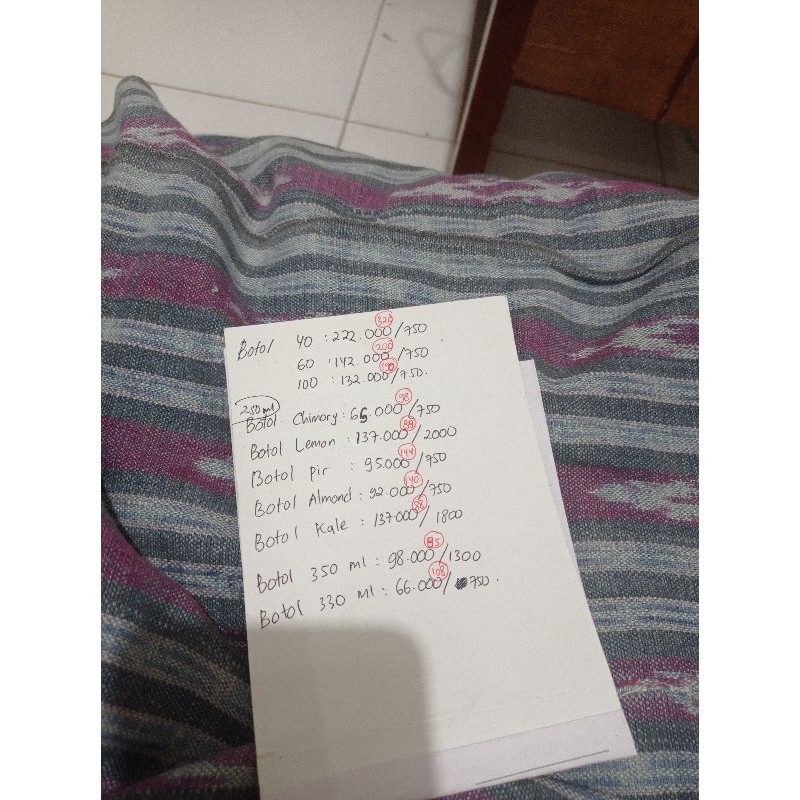 320
Botol 40 : 222.000/750
200
60 : 142.000/750
100 : 132.000/750.
250 ml
98
Botol Chimory : 66.000/750
Botol Lemon : 137.000/2000
144
Botol Pir : 95.000/750
140
Botol Almond : 92.000/750
Botol Kale : 137.000/1800
85
Botol 350 ml : 98.000/1300
108
Botol 330 ml : 66.000/750.